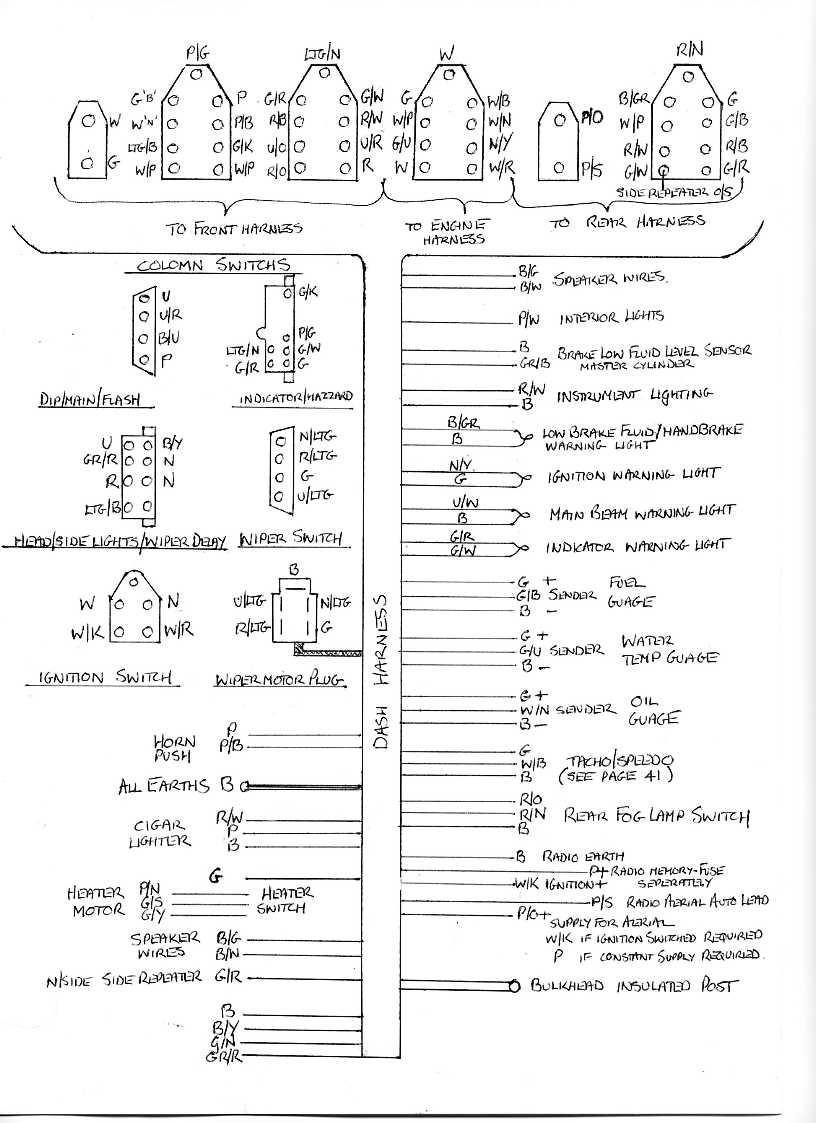 P/G LTG/N W R/N
W
G
G'B' P
W'N' P/B
LTG/B G/K
W/P W/P
G/R G/W
R/B R/W
U/O U/R
R/O R
G W/B
W/P W/N
G/U N/Y
W W/R
P/O
P/S
B/GR G
W/P G/B
R/W R/B
G/W G/R
SIDE REPEATER O/S
TO FRONT HARNESS
TO ENGINE
HARNESS
TO REAR HARNESS
COLOMN SWITCHS
U
U/R
B/U
P
DIP/MAIN/FLASH
G/K
P/G
LTG/N G/W
G/R G
INDICATOR/HAZZARD
U B/Y
GR/R N
R N
LTG/B
HEAD/SIDE LIGHTS/WIPER DELAY
N/LTG
R/LTG
G
U/LTG
WIPER SWITCH
W N
W/K W/R
IGNITION SWITCH
B
U/LTG N/LTG
R/LTG G
WIPER MOTOR PLUG
HORN
PUSH
P
P/B
ALL EARTHS B
CIGAR
LIGHTER
R/W
P
B
G
HEATER
MOTOR
P/N
G/S
G/Y
HEATER
SWITCH
SPEAKER
WIRES
B/G
B/N
N/SIDE SIDE REPEATER G/R
B
B/Y
G/N
GR/R
DASH HARNESS
B/G
B/W
SPEAKER WIRES.
P/W INTERIOR LIGHTS
B
GR/B
BRAKE LOW FLUID LEVEL SENSOR
MASTER CYLINDER
R/W
B
INSTRUMENT LIGHTING
B/GR
B
LOW BRAKE FLUID/HANDBRAKE
WARNING LIGHT
N/Y
G
IGNITION WARNING LIGHT
U/W
B
MAIN BEAM WARNING LIGHT
G/R
G/W
INDICATOR WARNING LIGHT
G +
G/B SENDER
B -
FUEL
GUAGE
G +
G/U SENDER
B -
WATER
TEMP GUAGE
G+
W/N SENDER
B -
OIL
GUAGE
G
W/B
B
TACHO/SPEEDO
(SEE PAGE 41)
R/O
R/N
B
REAR FOG LAMP SWITCH
B RADIO EARTH
P+ RADIO MEMORY-FUSE
SEPERATELY
W/K IGNITION+
P/S RADIO AERIAL AUTO LEAD
P/O+
SUPPLY FOR AERIAL
W/K IF IGNITION SWITCHED REQUIRED
P IF CONSTANT SUPPLY REQUIRED.
BULKHEAD INSULATED POST